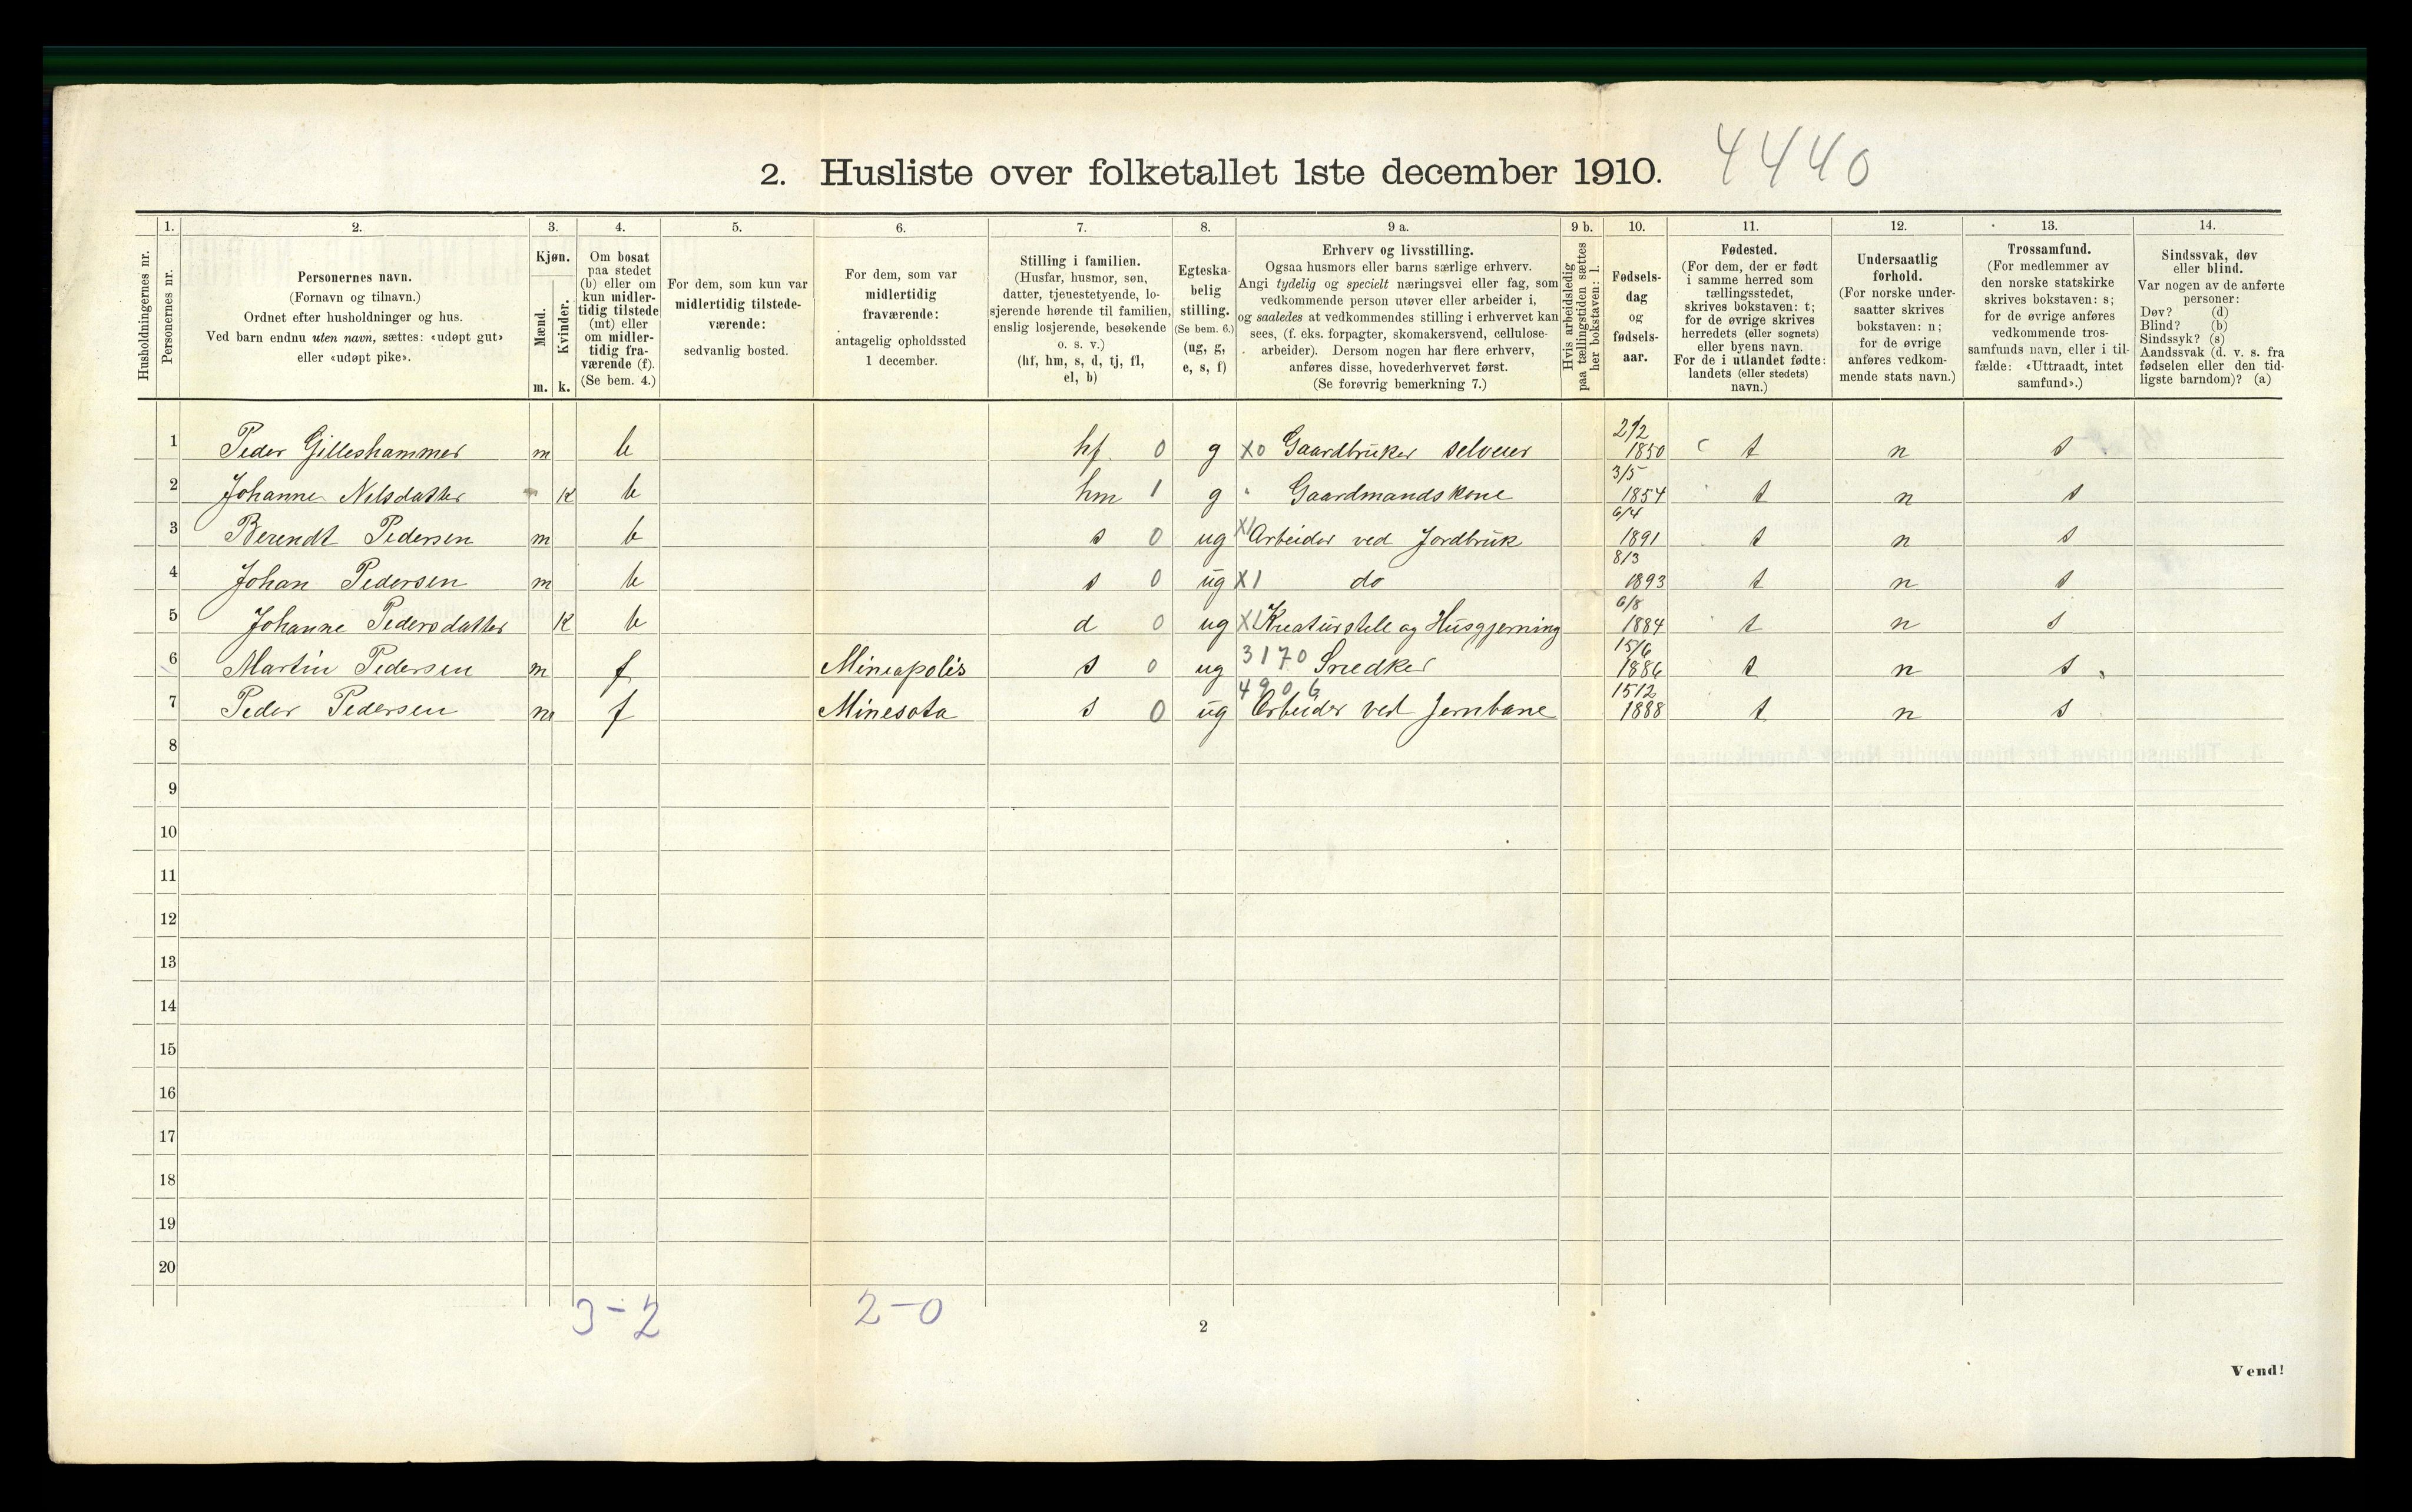 2. Husliste over folketallet 1ste december 1910. 4440
1. 2. 3. 4. 5. 6. 7. 8. 9 a. 9 b. 10. 11. 12. 13. 14.
Husholdningernes nr.
Personernes nr.
Personernes navn.
(Fornavn og tilnavn.)
Ordnet efter husholdninger og hus.
Ved barn endnu uten navn, sættes: «udøpt gut»
eller «udøpt pike».
Kjøn.
Mænd.
Kvinder.
m. k.
Om bosat
paa stedet
(b) eller om
kun midler-
tidig tilstede
(mt) eller
om midler-
tidig fra-
værende (f).
(Se bem. 4.)
For dem, som kun var
midlertidig tilstede-
værende:
sedvanlig bosted.
For dem, som var
midlertidig
fraværende:
antagelig opholdssted
1 december.
Stilling i familien.
(Husfar, husmor, søn,
datter, tjenestetyende, lo-
sjerende hørende til familien,
enslig losjerende, besøkende
o. s. v.)
(hf, hm, s, d, tj, fl,
el, b)
Egteska-
belig
stilling.
(Se bem. 6.)
(ug, g,
e, s, f)
Erhverv og livsstilling.
Ogsaa husmors eller barns særlige erhverv.
Angi tydelig og specielt næringsvei eller fag, som
vedkommende person utøver eller arbeider i,
og saaledes at vedkommendes stilling i erhvervet kan
sees, (f. eks. forpagter, skomakersvend, cellulose-
arbeider). Dersom nogen har flere erhverv,
anføres disse, hovederhvervet først.
(Se forøvrig bemerkning 7.)
Hvis arbeidsledig
paa tællingstiden sættes
her bokstaven: l.
Fødsels-
dag
og
fødsels-
aar.
Fødested.
(For dem, der er født
i samme herred som
tællingsstedet,
skrives bokstaven: t;
for de øvrige skrives
herredets (eller sognets)
eller byens navn.
For de i utlandet fødte:
landets (eller stedets)
navn.)
Undersaatlig
forhold.
(For norske under-
saatter skrives
bokstaven: n;
for de øvrige
anføres vedkom-
mende stats navn.)
Trossamfund.
(For medlemmer av
den norske statskirke
skrives bokstaven: s;
for de øvrige anføres
vedkommende tros-
samfunds navn, eller i til-
fælde: «Uttraadt, intet
samfund».)
Sindssvak, døv
eller blind.
Var nogen av de anførte
personer:
Døv? (d)
Blind? (b)
Sindssyk? (s)
Aandssvak (d. v. s. fra
fødselen eller den tid-
ligste barndom)? (a)
1 Peder Gilleshammer m b hf 0 g X0 Gaardbruker selveier 2/2 1850 t n s
2 Johanne Nilsdatter K b hm 1 g Gaardmandskone 3/5 1854 t n s
3 Berendt Pedersen m b s 0 ug X1 Arbeider ved Jordbruk 6/4 1891 t n s
4 Johan Pedersen m b s 0 ug X1 do 8/3 1893 t n s
5 Johanne Pedersdatter K b d 0 ug X1 Kreaturstell og Husgjerning 6/8 1884 t n s
6 Martin Pedersen m f Mineapolis s 0 ug 3170 Snedker 15/6 1886 t n s
7 Peder Pedersen m f Minesota s 0 ug 4906 Arbeider ved Jernbane 15/2 1888 t n s
8
9
10
11
12
13
14
15
16
17
18
19
20
3-2 2-0
2
Vend!